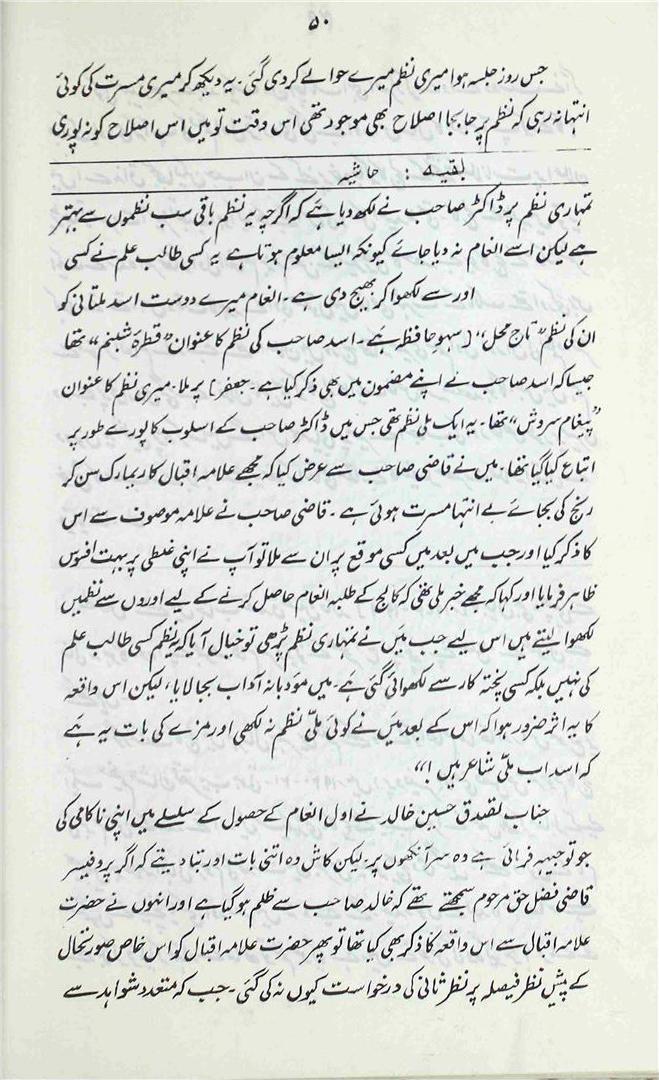 ۵۰
جس روز جلسہ ہوا میری نظم میرے حوالے کر دی گئی۔ یہ دیکھ کر میری مسرت کی کوئی
انتہا نہ رہی کہ نظم پر جا بجا اصلاح بھی موجود تھی اس وقت تو میں اس اصلاح کو نہ پوری
بقیہ : حاشیہ
تمہاری نظم پر ڈاکٹر صاحب نے لکھ دیا ہے کہ اگرچہ یہ نظم باقی سب نظموں سے بہتر
ہے لیکن اسے انعام نہ دیا جائے کیونکہ ایسا معلوم ہوتا ہے یہ کسی طالب علم نے کسی
اور سے لکھوا کر بھیج دی ہے۔ انعام میرے دوست اسد ملتانی کو
ان کی نظم "تاج محل" [سہو حافظہ ہے۔ اسد صاحب کی نظم کا عنوان "قطرۂ شبنم" تھا
جیسا کہ اسد صاحب نے اپنے مضمون میں بھی ذکر کیا ہے۔ جعفر] پر ملا۔ میری نظم کا عنوان
"پیغام سروش" تھا۔ یہ ایک ملی نظم تھی جس میں ڈاکٹر صاحب کے اسلوب کا پورے طور پر
اتباع کیا گیا تھا۔ میں نے قاضی صاحب سے عرض کیا کہ مجھے علامہ اقبال کا ریمارک سن کر
رنج کی بجائے بے انتہا مسرت ہوئی ہے۔ قاضی صاحب نے علامہ موصوف سے اس
کا ذکر کیا اور جب میں بعد میں کسی موقع پر ان سے ملا تو آپ نے اپنی غلطی پر بہت افسوس
ظاہر فرمایا اور کہا کہ مجھے خبر ملی تھی کہ کالج کے طلبہ انعام حاصل کرنے کے لیے اوروں سے نظمیں
لکھوا لیتے ہیں اس لیے جب میں نے تمہاری نظم پڑھی تو خیال آیا کہ یہ نظم کسی طالب علم
کی نہیں بلکہ کسی پختہ کار سے لکھوائی گئی ہے۔ میں مؤدبانہ آداب بجا لایا، لیکن اس واقعہ
کا یہ اثر ضرور ہوا کہ اس کے بعد میں نے کوئی ملّی نظم نہ لکھی اور مزے کی بات یہ ہے
کہ اسد اب ملّی شاعر ہیں!"
جناب تصدق حسین خالد نے اول انعام کے حصول کے سلسلے میں اپنی ناکامی کی
جو توجیہہ فرمائی ہے وہ سر آنکھوں پر۔ لیکن کاش وہ اتنی بات اور بتا دیتے کہ اگر پروفیسر
قاضی فضل حق مرحوم سمجھتے تھے کہ خالد صاحب سے ظلم ہو گیا ہے اور انہوں نے حضرت
علامہ اقبال سے اس واقعہ کا ذکر بھی کیا تھا تو پھر حضرت علامہ اقبال کو اس خاص صورتحال
کے پیش نظر فیصلہ پر نظر ثانی کی درخواست کیوں نہ کی گئی۔ جب کہ متعدد شواہد سے